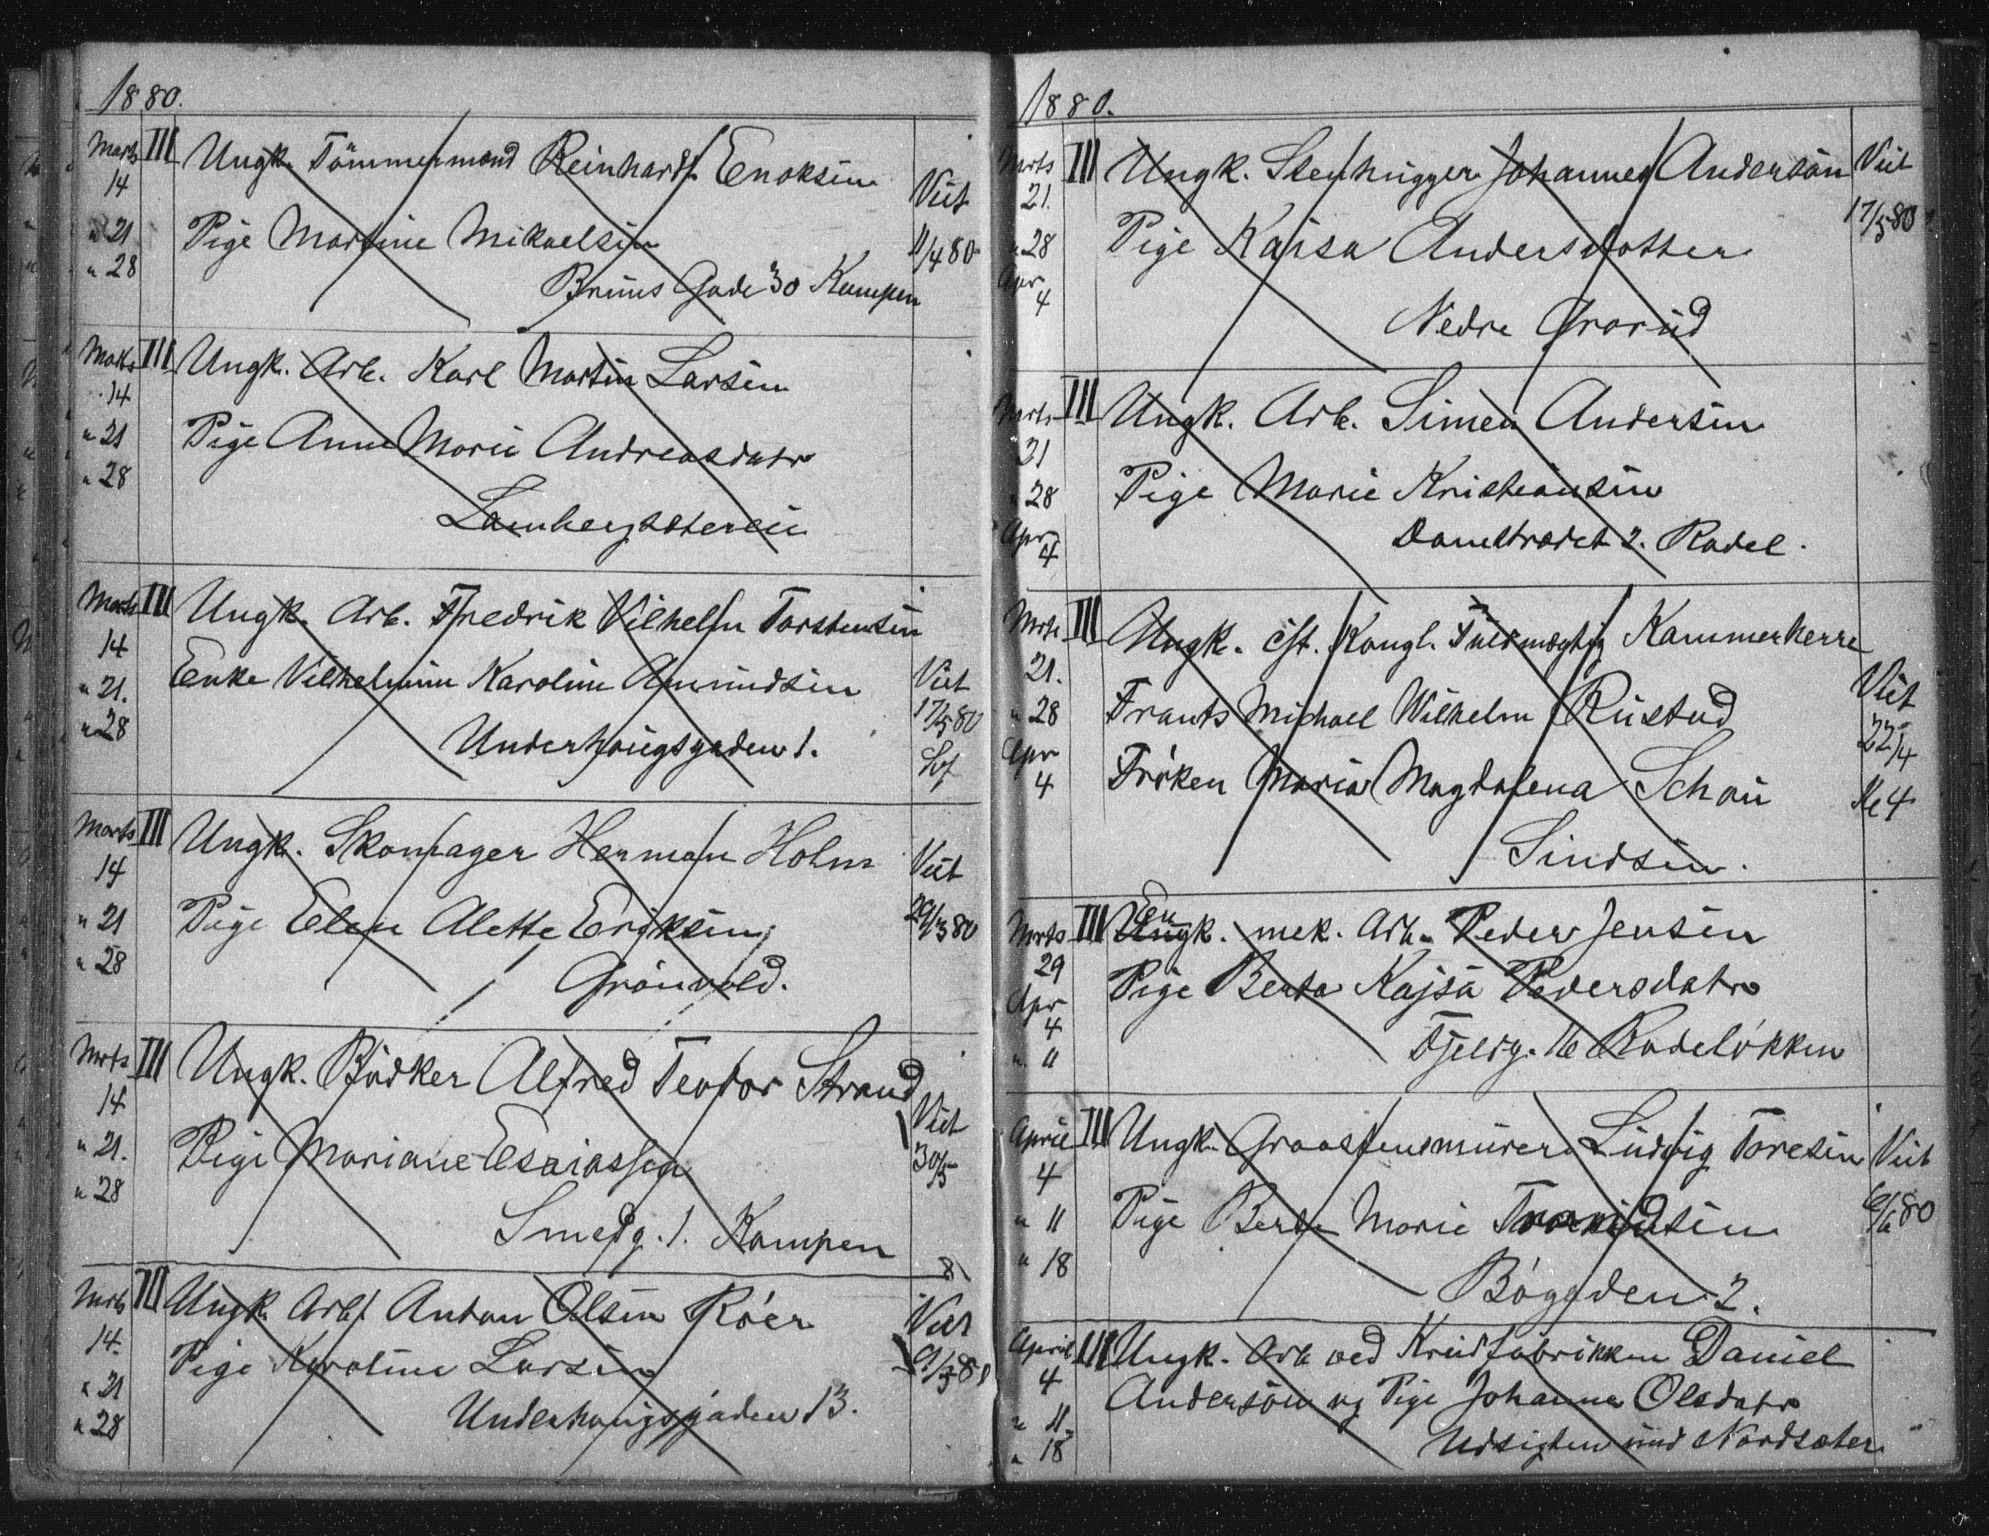 1880.
Marts III Ungk. Tömmermand Reinhardt Enoksen
14 Viet
" 21 Pige Martine Mikaelsen 11/4 80
" 28 Bruns Gade 30 Kampen
Marts III Ungk. Arb. Karl Martin Larsen
14
" 21 Pige Anne Marie Andreasdatr
" 28
Marts III Ungk. Arb. Fredrik Vilhelm Torstensen
14
" 21. Enke Vilhelmine Karoline Amundsen Viet
" 28 Underhaugsgaden 1. 17/5 80
Marts III Ungk. Skomager Herman Holm
14 Viet
" 21 Pige Elen Alette Eriksen 29/3 80
" 28 Grönvold.
Mrts III Ungk. Bödker Alfred Teodor Strand
14 Viet
" 21. Pige Mariane Esaiassen 30/5
" 28 Smedg. 1. Kampen
Mrts III Ungk. Arb. Anton Olsen Röer
14. Viet
" 21 Pige Karoline Larsen
" 28 Underhaugsgaden 13.
1880.
Mrts III Ungk. Stenhugger Johannes Anderson Viet
21. 17/5 80
" 28 Pige Kajsa Andersdotter
Apr 4 Nedre Grorud
Mrts III Ungk. Arb. Simen Andersen
21
" 28 Pige Marie Kristiansen
Apr 4 Damstrædet 2. Rodel.
Mrts III Ungk. cst. Kongl. Fuldmægtig Kammerherre
21. Viet
" 28 Frants Michael Wilhelm Rustad 22/4
Apr
4 Fröken Maria Magdalena Schou Kl 4
Sindsen.
Mrts III Em Ungk. mek. Arb. Peder Jensen
29 Pige Berta Kajsa Pedersdatr
Apr 4
" 11 Fjeldg. 16 Rodelökken
April III Ungk. Graastensmurer Ludvig Toresen Viet
4
" 11 Pige Berte Marie 6/6 80
" 18 Böggaden 2.
April III Ungk. Arb ved Krudfabrikken Daniel
4 Anderson og Pige Johanne Olsdatr
" 11.
" 18 Udsigten und Nordsæter